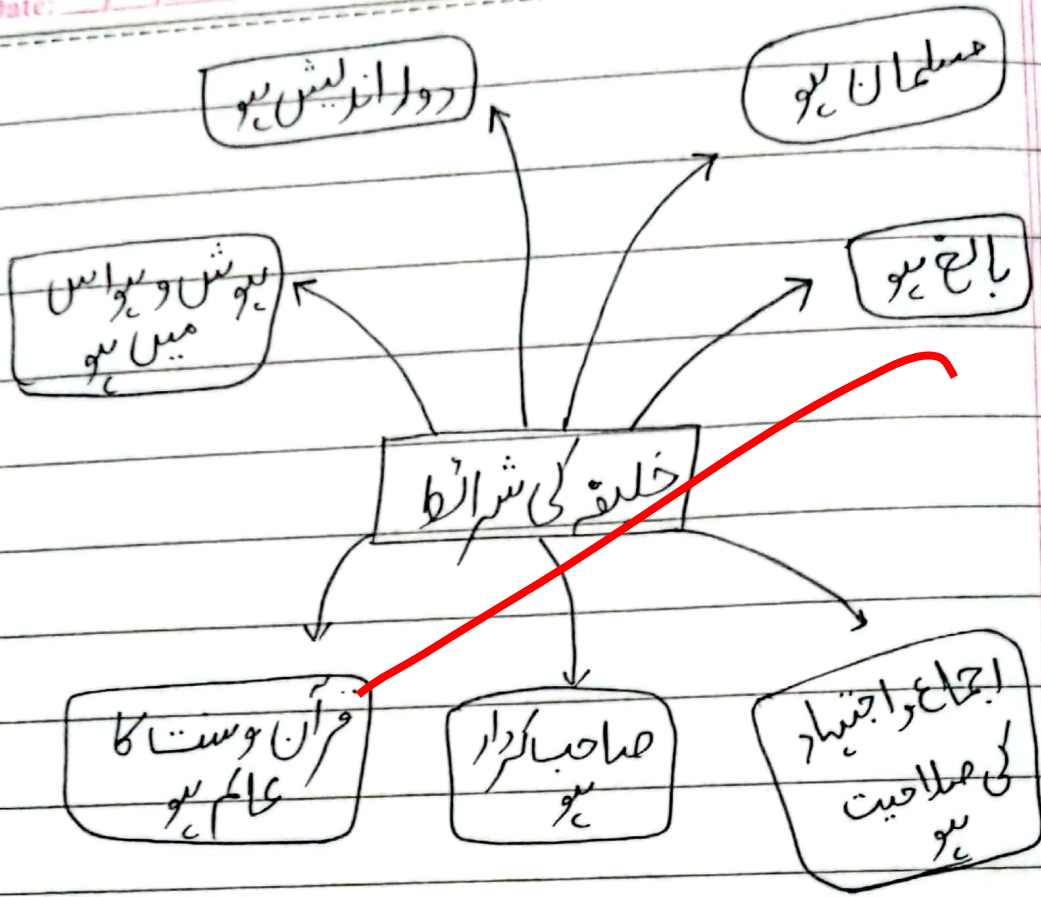 Date:
دور اندیش ہو
مسلمان ہو
ہوش و ہواس
میں ہو
بالغ ہو
خلیفہ کی شرائط
قرآن و سنت کا
عالم ہو
صاحب کردار
ہو
اجماع و اجتہاد
کی صلاحیت
ہو